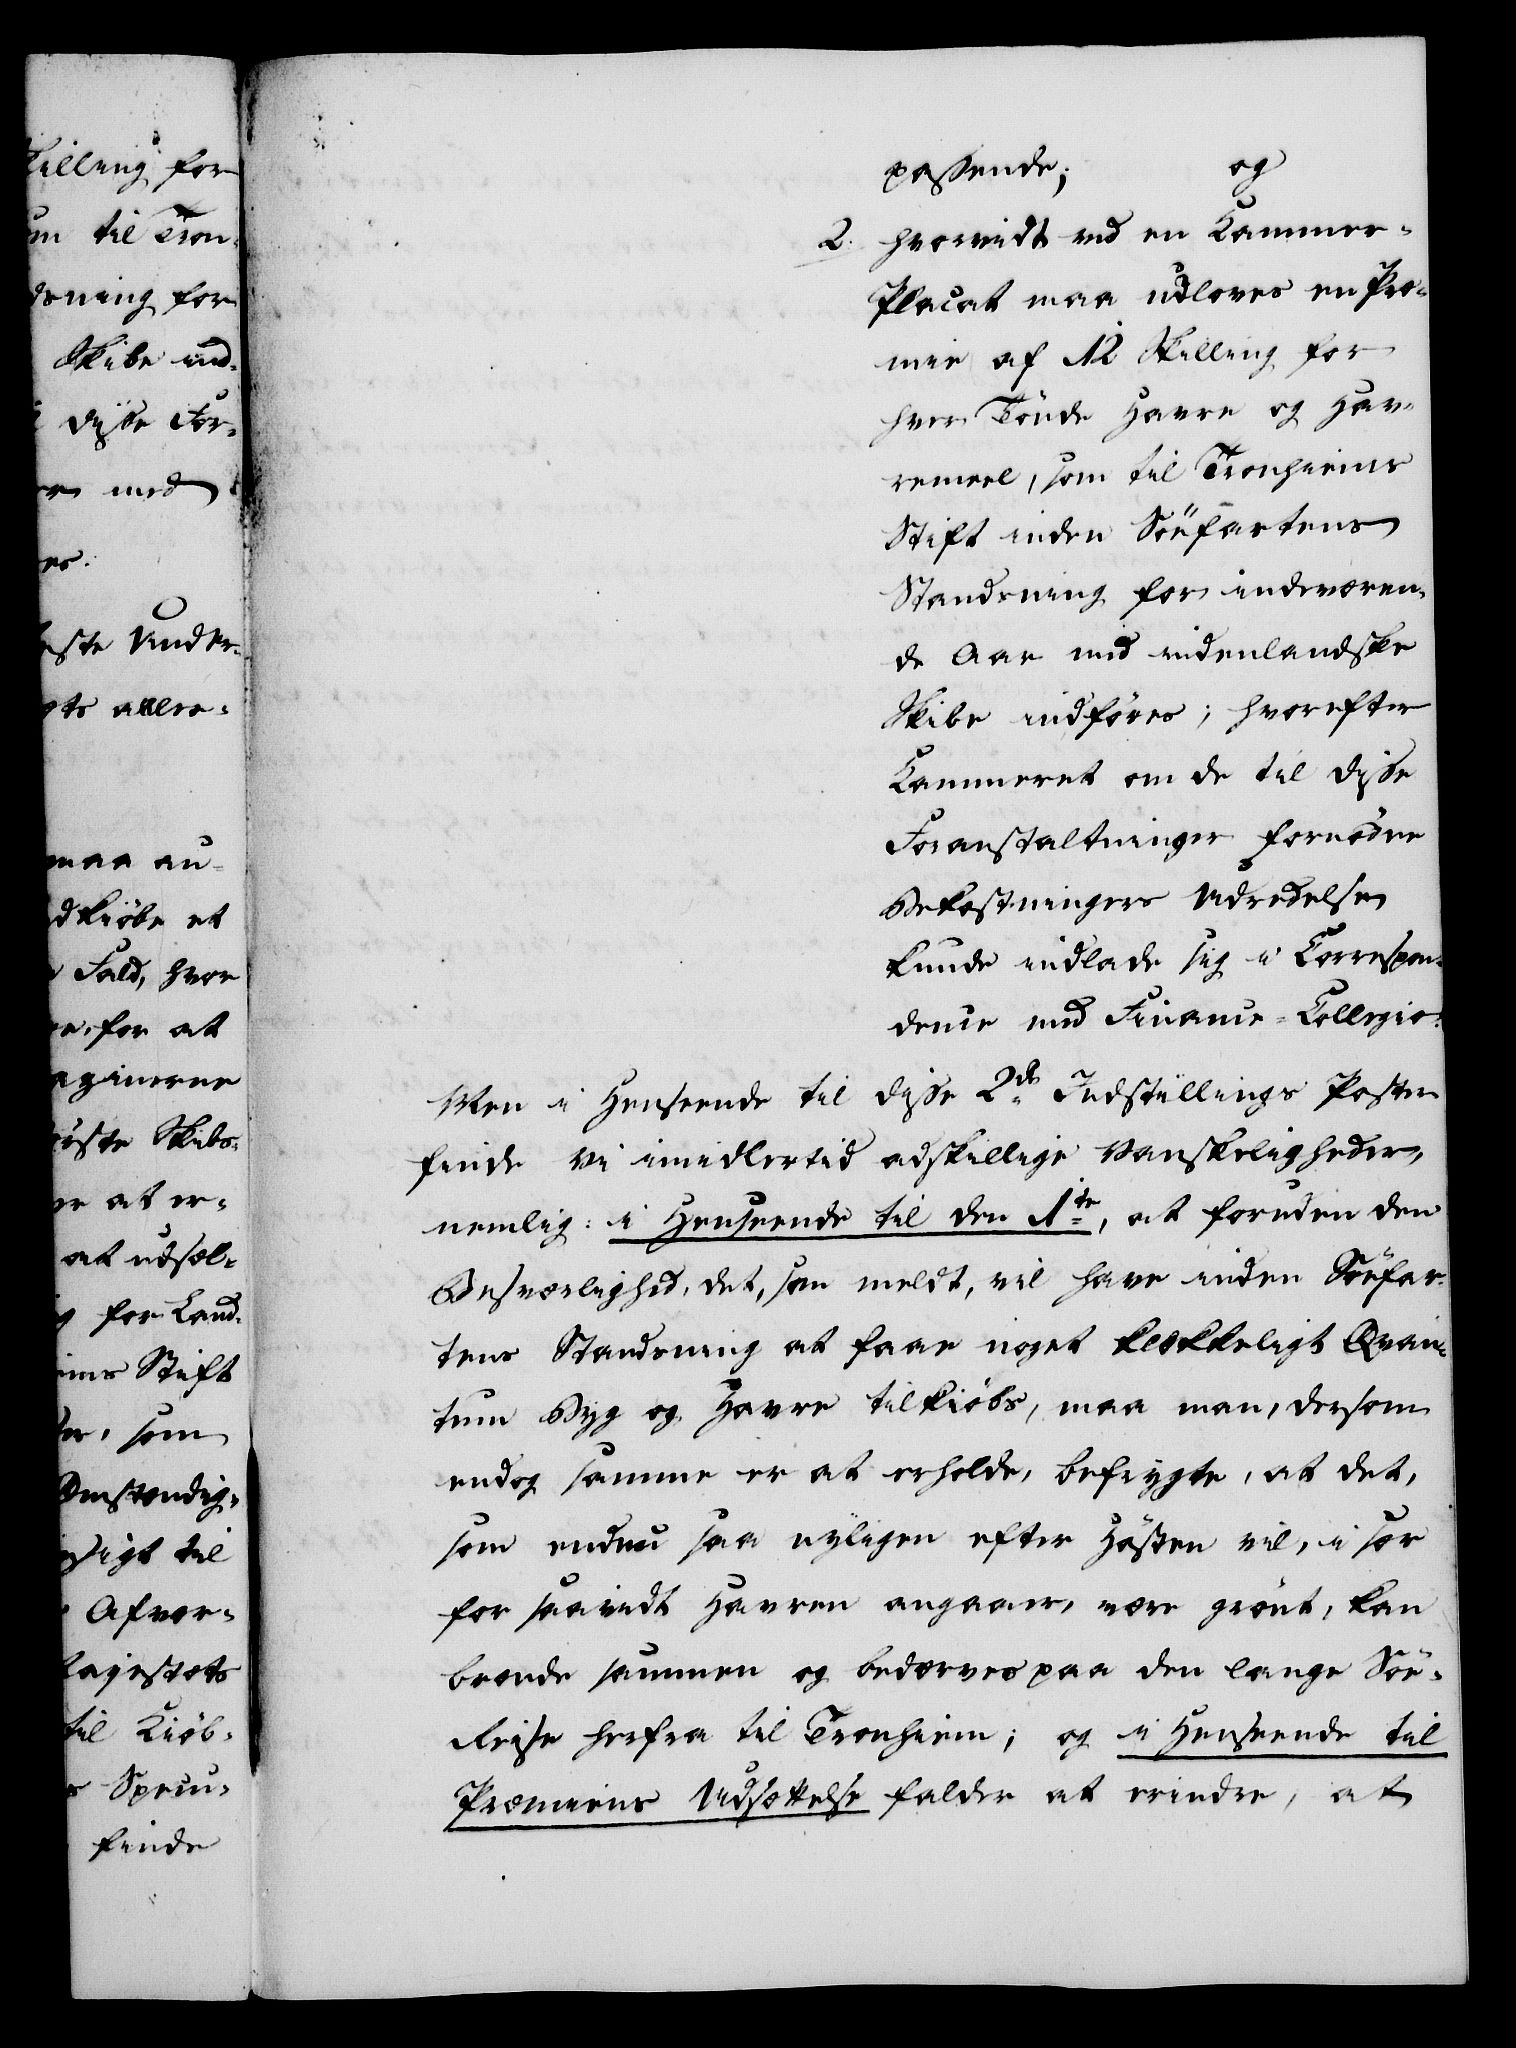 killing for
um til Tron-
dsning for
Skibe ind-
disse For-
er med
es.
ste Under-
gts aller-
maa an-
dkiøbe et
Fald, hvor
re, for at
agzinerne
første Skibs-
er at er-
at udsæl-
g for Land-
ims Stift
der, som
Omstændig-
nsigt til
Afvær-
Majestæts
til Kiøb-
s Specu-
finde
passende; og
2. hvorvidt ved en Kammer-
Placat maa udloves en Præ-
mie af 12 Skilling for
hver Tønde Havre og Hav-
remeel, som til Tronhiems
Stift inden Söefartens
Standsning for indeværen-
de Aar med indenlandske
Skibe indføres; hvorefter
Kammeret om de til disse
Foranstaltninger fornødne
Bekostningers Udredelse
kunde indlade sig i Correspon-
dence med Finance-Collegio.
Men i Henseende til disse 2de Indstillings Poster
finde vi imidlertid adskillige Vanskeligheder,
nemlig: i Henseende til den 1te, at foruden den
Besværlighed, det, som meldt, vil have inden Söefar-
tens Standsning at faae noget klækkeligt Qvan-
tum Byg og Havre tilkiøbs, maa man, dersom
endog samme er at erholde, befrygte, at det,
som endnu saa nyligen efter Høsten vil, i sær
for saavidt Havren angaaer, være grønt, kan
brænde sammen og bedærves paa den lange Söe-
Reise herfra til Tronhiem; og i Henseende til
Præmiens Udsættelse falder at erindre, at